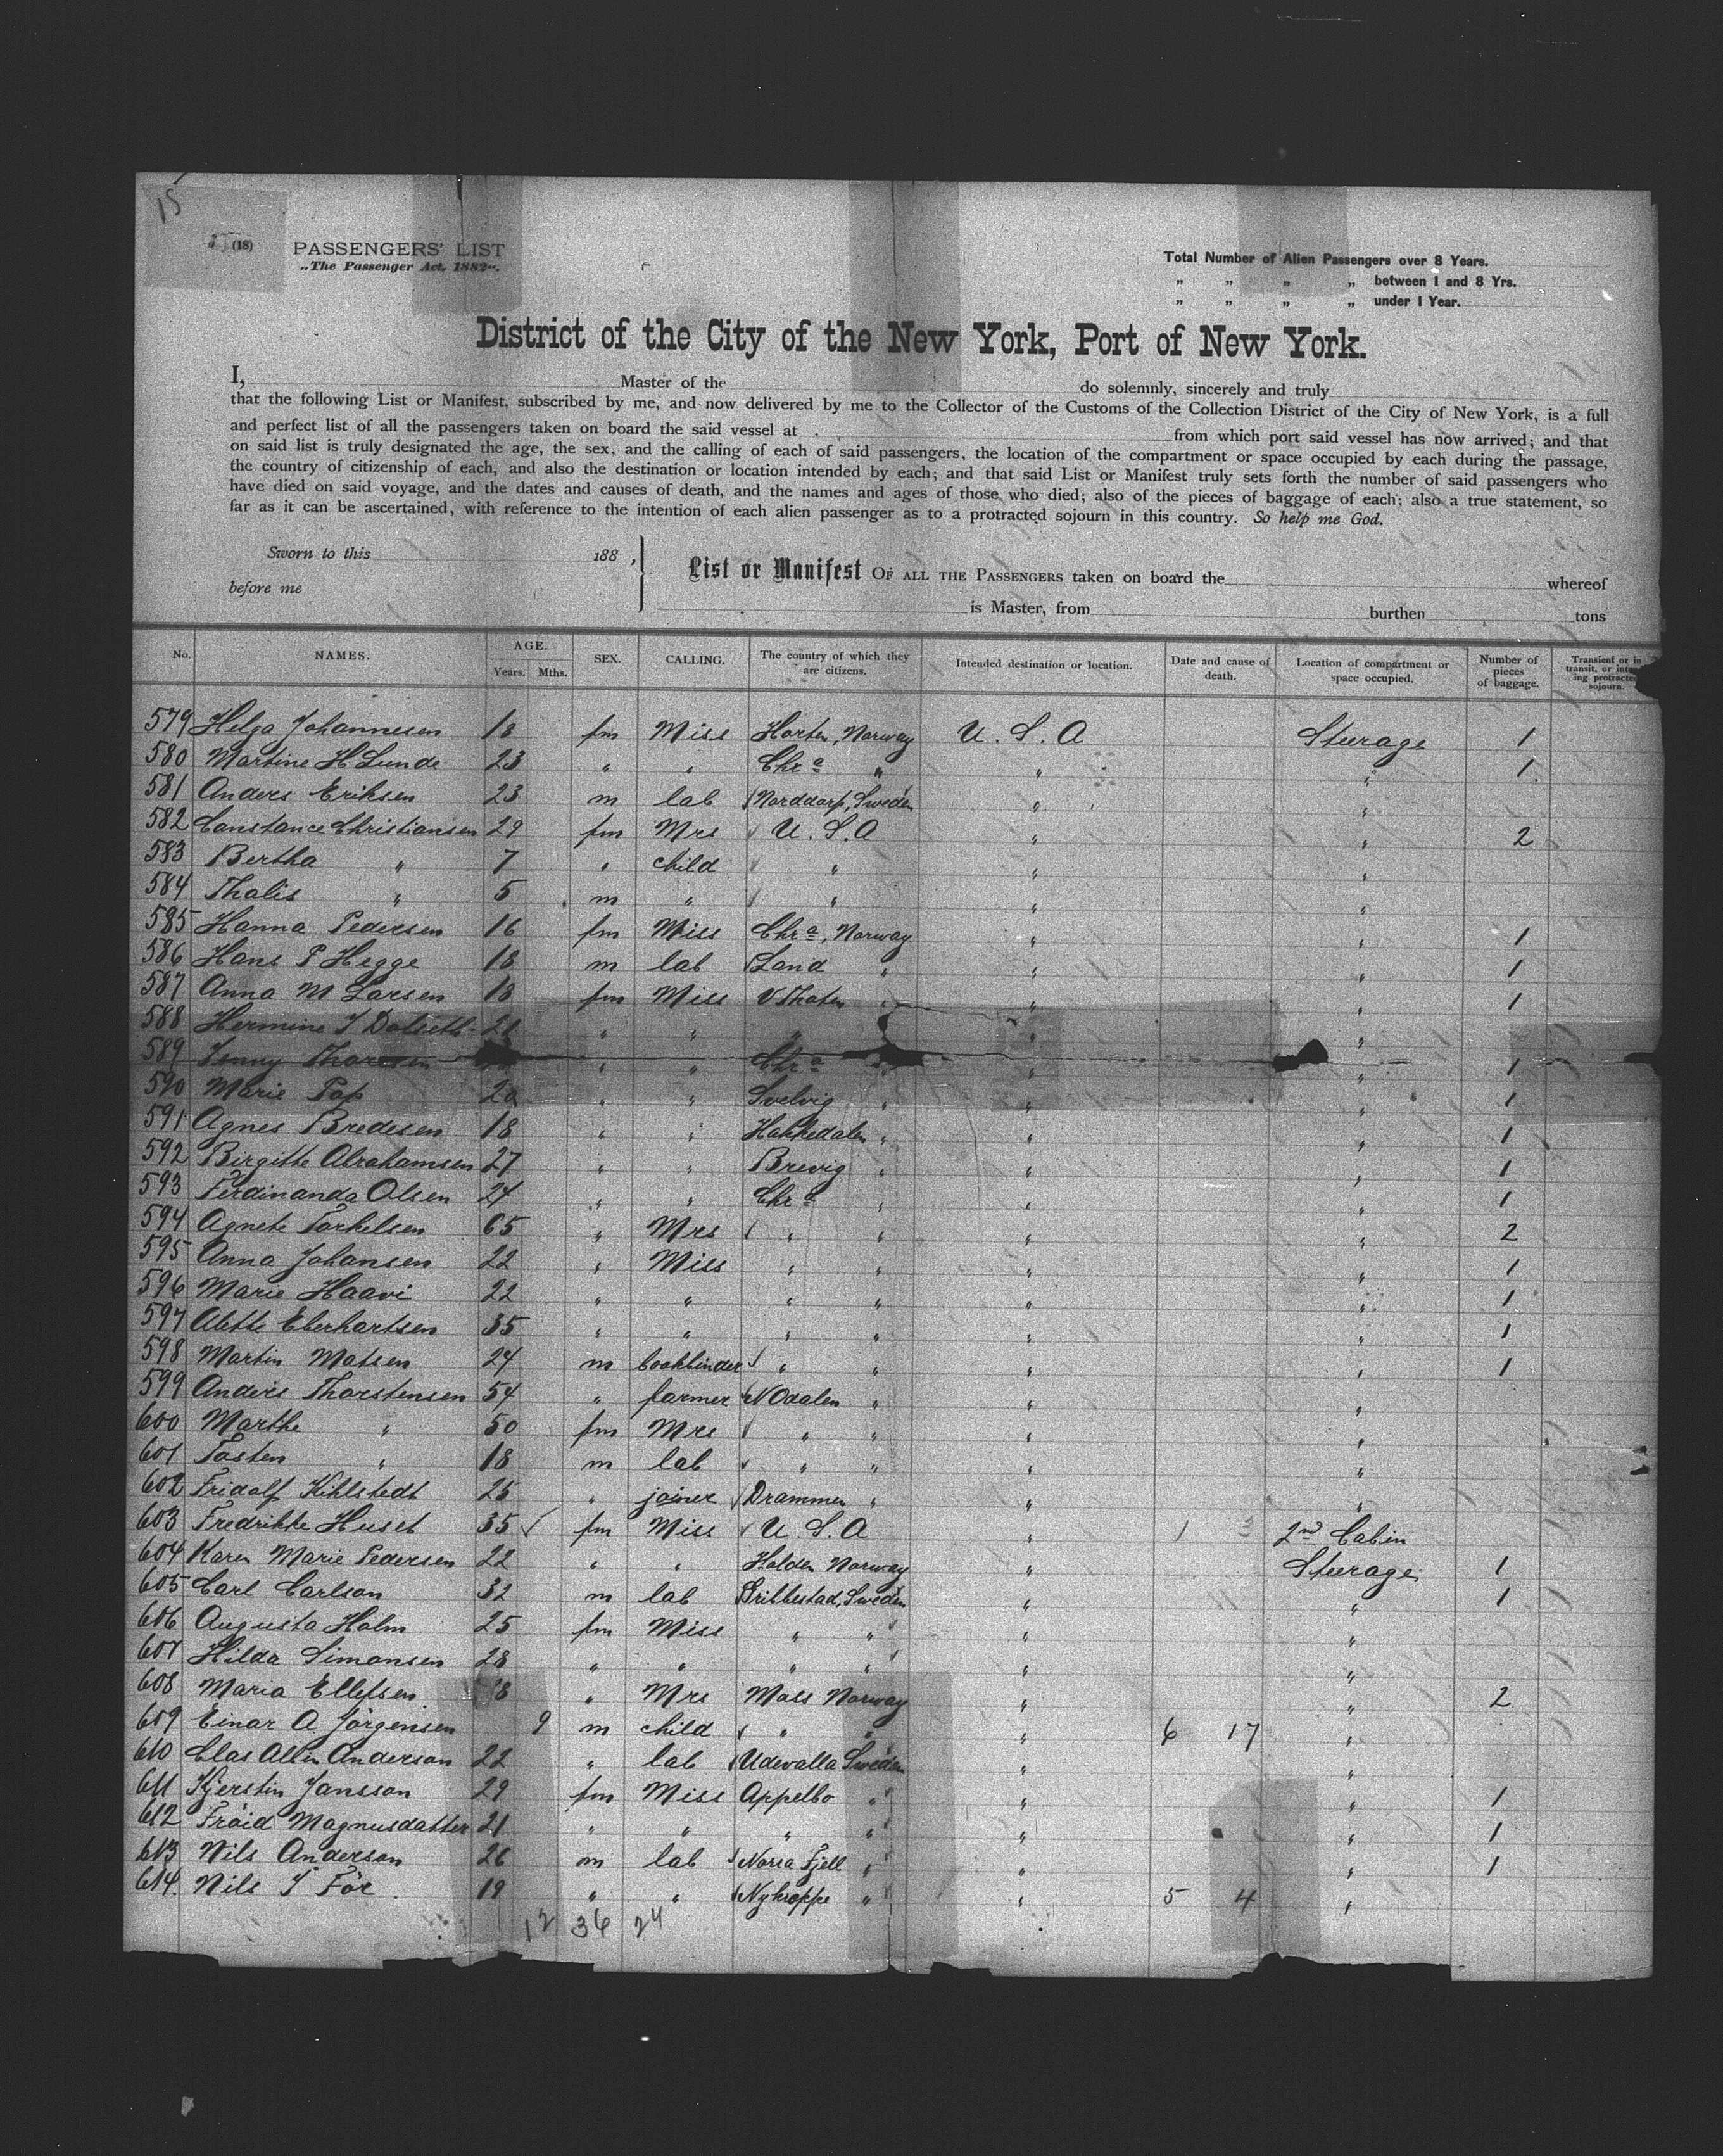 15
(18)
PASSENGERS' LIST
„The Passenger Act, 1882".
Total Number of Alien Passengers over 8 Years.
„ „ „ „ between 1 and 8 Yrs.
„ „ „ „ under 1 Year.
District of the City of the New York, Port of New York.
I, Master of the do solemnly, sincerely and truly
that the following List or Manifest, subscribed by me, and now delivered by me to the Collector of the Customs of the Collection District of the City of New York, is a full
and perfect list of all the passengers taken on board the said vessel at from which port said vessel has now arrived; and that
on said list is truly designated the age, the sex, and the calling of each of said passengers, the location of the compartment or space occupied by each during the passage,
the country of citizenship of each, and also the destination or location intended by each; and that said List or Manifest truly sets forth the number of said passengers who
have died on said voyage, and the dates and causes of death, and the names and ages of those who died; also of the pieces of baggage of each; also a true statement, so
far as it can be ascertained, with reference to the intention of each alien passenger as to a protracted sojourn in this country. So help me God.
Sworn to this 188 ,
before me
List or Manifest OF ALL THE PASSENGERS taken on board the whereof
is Master, from burthen tons
No. NAMES. AGE. Years. Mths. SEX. CALLING. The country of which they are citizens. Intended destination or location. Date and cause of death. Location of compartment or space occupied. Number of pieces of baggage. Transient or in transit, or protracted sojourn.
579 Helga Johannesen 18 fm Miss Horten, Norway U. S. A Steerage 1
580 Martine H Lunde 23 " " Chra " " " 1
581 Anders Eriksen 23 m lab Norddorp, Sweden " "
582 Constance Christiansen 29 fm Mrs U. S. A " " 2
583 Bertha " 7 " child " " "
584 Thalis " 5 m " " " "
585 Hanna Pedersen 16 fm Miss Chra, Norway " " 1
586 Hans P Hegge 18 m lab Land " " " 1
587 Anna M Larsen 18 fm Miss V Thoten " " " 1
588 Hermine J " " " " "
589 Jenny Thoresen " " Chra " " " 1
590 Marie " " Svelvig " " " 1
591 Agnes Bredesen 18 " " Hakkedalen " " " 1
592 Birgitte Abrahamsen 27 " " Brevig " " " 1
593 Ferdinanda Olsen 24 " " Chra " " " 1
594 Agnete Torkelsen 65 " Mrs " " " " 2
595 Anna Johansen 22 " Miss " " " " 1
596 Marie Haavi 22 " " " " " " 1
597 Alette Eberhartsen 35 " " " " " " 1
598 Martin Matsen 24 m bookbinder " " " " 1
599 Anders Thorstensen 54 " farmer N Odalen " " "
600 Marthe " 50 fm Mrs " " " "
601 Tosten " 18 m lab " " " "
602 Fridolf Kihlstedt 25 " joiner Drammen " " "
603 Fredrikke Huset 35 fm Miss U. S. A " 2nd Cabin
604 Karen Marie Pedersen 22 " " Halden Norway " Steerage 1
605 Carl Carlson 32 m lab Gribbestad, Sweden " " 1
606 Augusta Holm 25 fm Miss " " " "
607 Hilda Simonsen 28 " " " " " "
608 Maria Ellefsen " Mrs Moss Norway " " 2
609 Einar A Jörgensen 9 m child " " " 6 17 "
610 Clas Allin Anderson 22 " lab Udevalla Sweden " "
611 Kjerstin Jansson 29 fm Miss Appelbo " " " 1
612 Fröid Magnusdatter 21 " " " " " " 1
613 Nils Anderson 26 m lab Norra Fjell " " " 1
614. Nils J För 19 " " Nykroppe " " 5 4 "
12 36 24